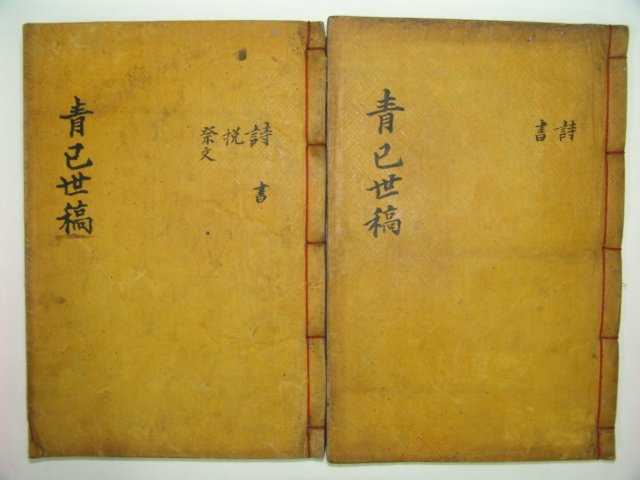 青己世稿
詩 書
挩
祭文
青己世稿
詩
書